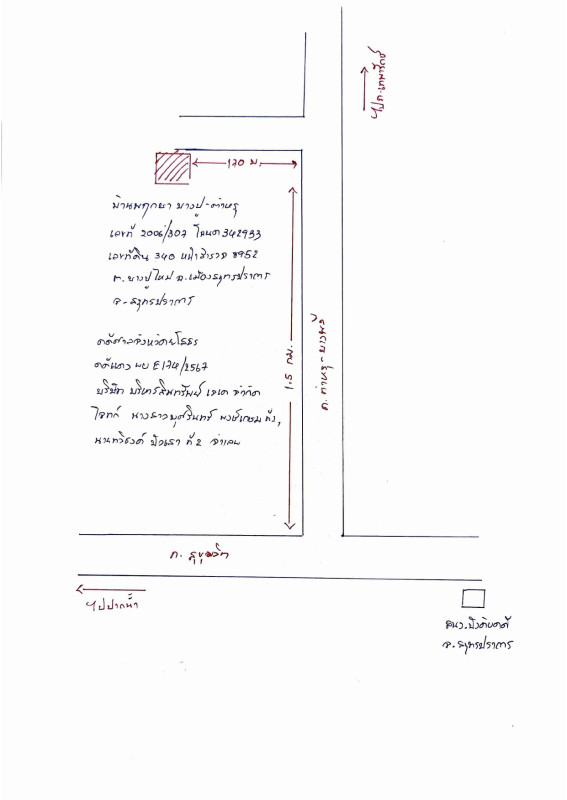 ไป ถ.เทพารักษ์
170 ม.
บ้านพฤกษา บางปู-ตำหรุ
เลขที่ 2006/307 โฉนด 342933
เลขที่ดิน 340 หน้าสำรวจ 8952
ต.บางปูใหม่ อ.เมืองสมุทรปราการ
จ.สมุทรปราการ
1.5 กม.
ถ.ตำหรุ-บางพลี
คดีศาลจังหวัดยโสธร
คดีแดง ผบ E174/2567
บริษัท บริหารสินทรัพย์ เจเค จำกัด
โจทก์ นางสาวบุศรินทร์
ที่ 2 จำเลย
ถ. สุขุมวิท
ไปปากน้ำ
สนง.บังคับคดี
จ.สมุทรปราการ